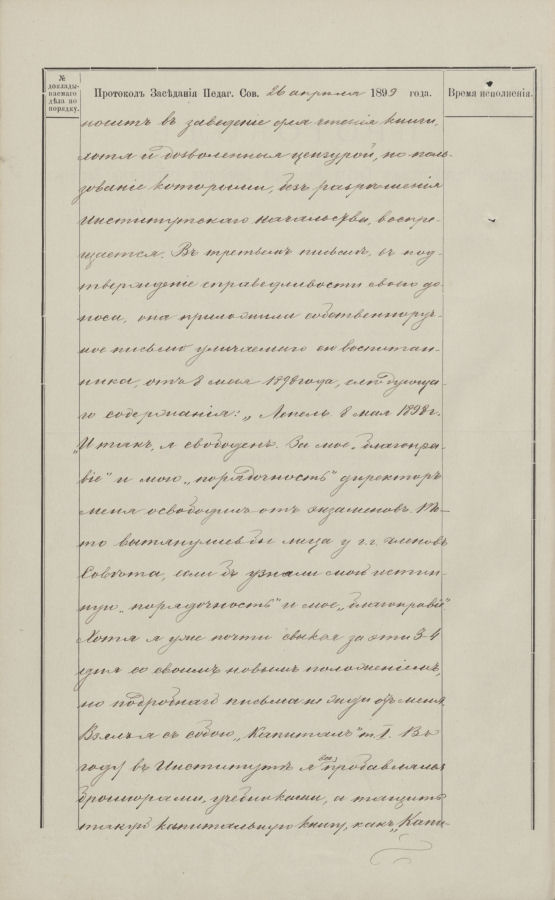 № доклады-
ваемаго
дѣла по
порядку.
Протоколъ Засѣданія Педаг. Сов. 26 апрѣля 1899 года.
Время исполненія.
носитъ въ заведеніе для чтенія книги,
хотя и дозволенныя цензурой, но поль-
зованіе которыми, безъ разрѣшенія
Институтскаго начальства, воспре-
щается. Въ третьемъ письмѣ, въ под-
твержденіе справедливости своего до-
носа, она приложила собственноруч-
ное письмо уличаемаго ею воспитан-
ника, отъ 8 мая 1898 года, слѣдующа-
го содержанія: „Лепель 8 мая 1898 г.
„И такъ, я свободенъ. За мое „благонра-
віе" и мою „порядочность" директоръ
меня освободилъ отъ экзаменовъ.
то вытянулись бы лица у г.г. членовъ
Совѣта, если бъ узнали мою истин-
ную „порядочность" и мое „благонравіе"
Хотя я уже почти свыкся за эти 3-4
дня со своимъ новымъ положеніемъ,
но подробнаго письма не жди отъ меня.
Взялъ я съ собою „Капиталъ" т. I. Въ
году въ Институтѣ я все пробавлялся
брошюрами, учебниками, а тащить
такую капитальную книгу, какъ „Капи-